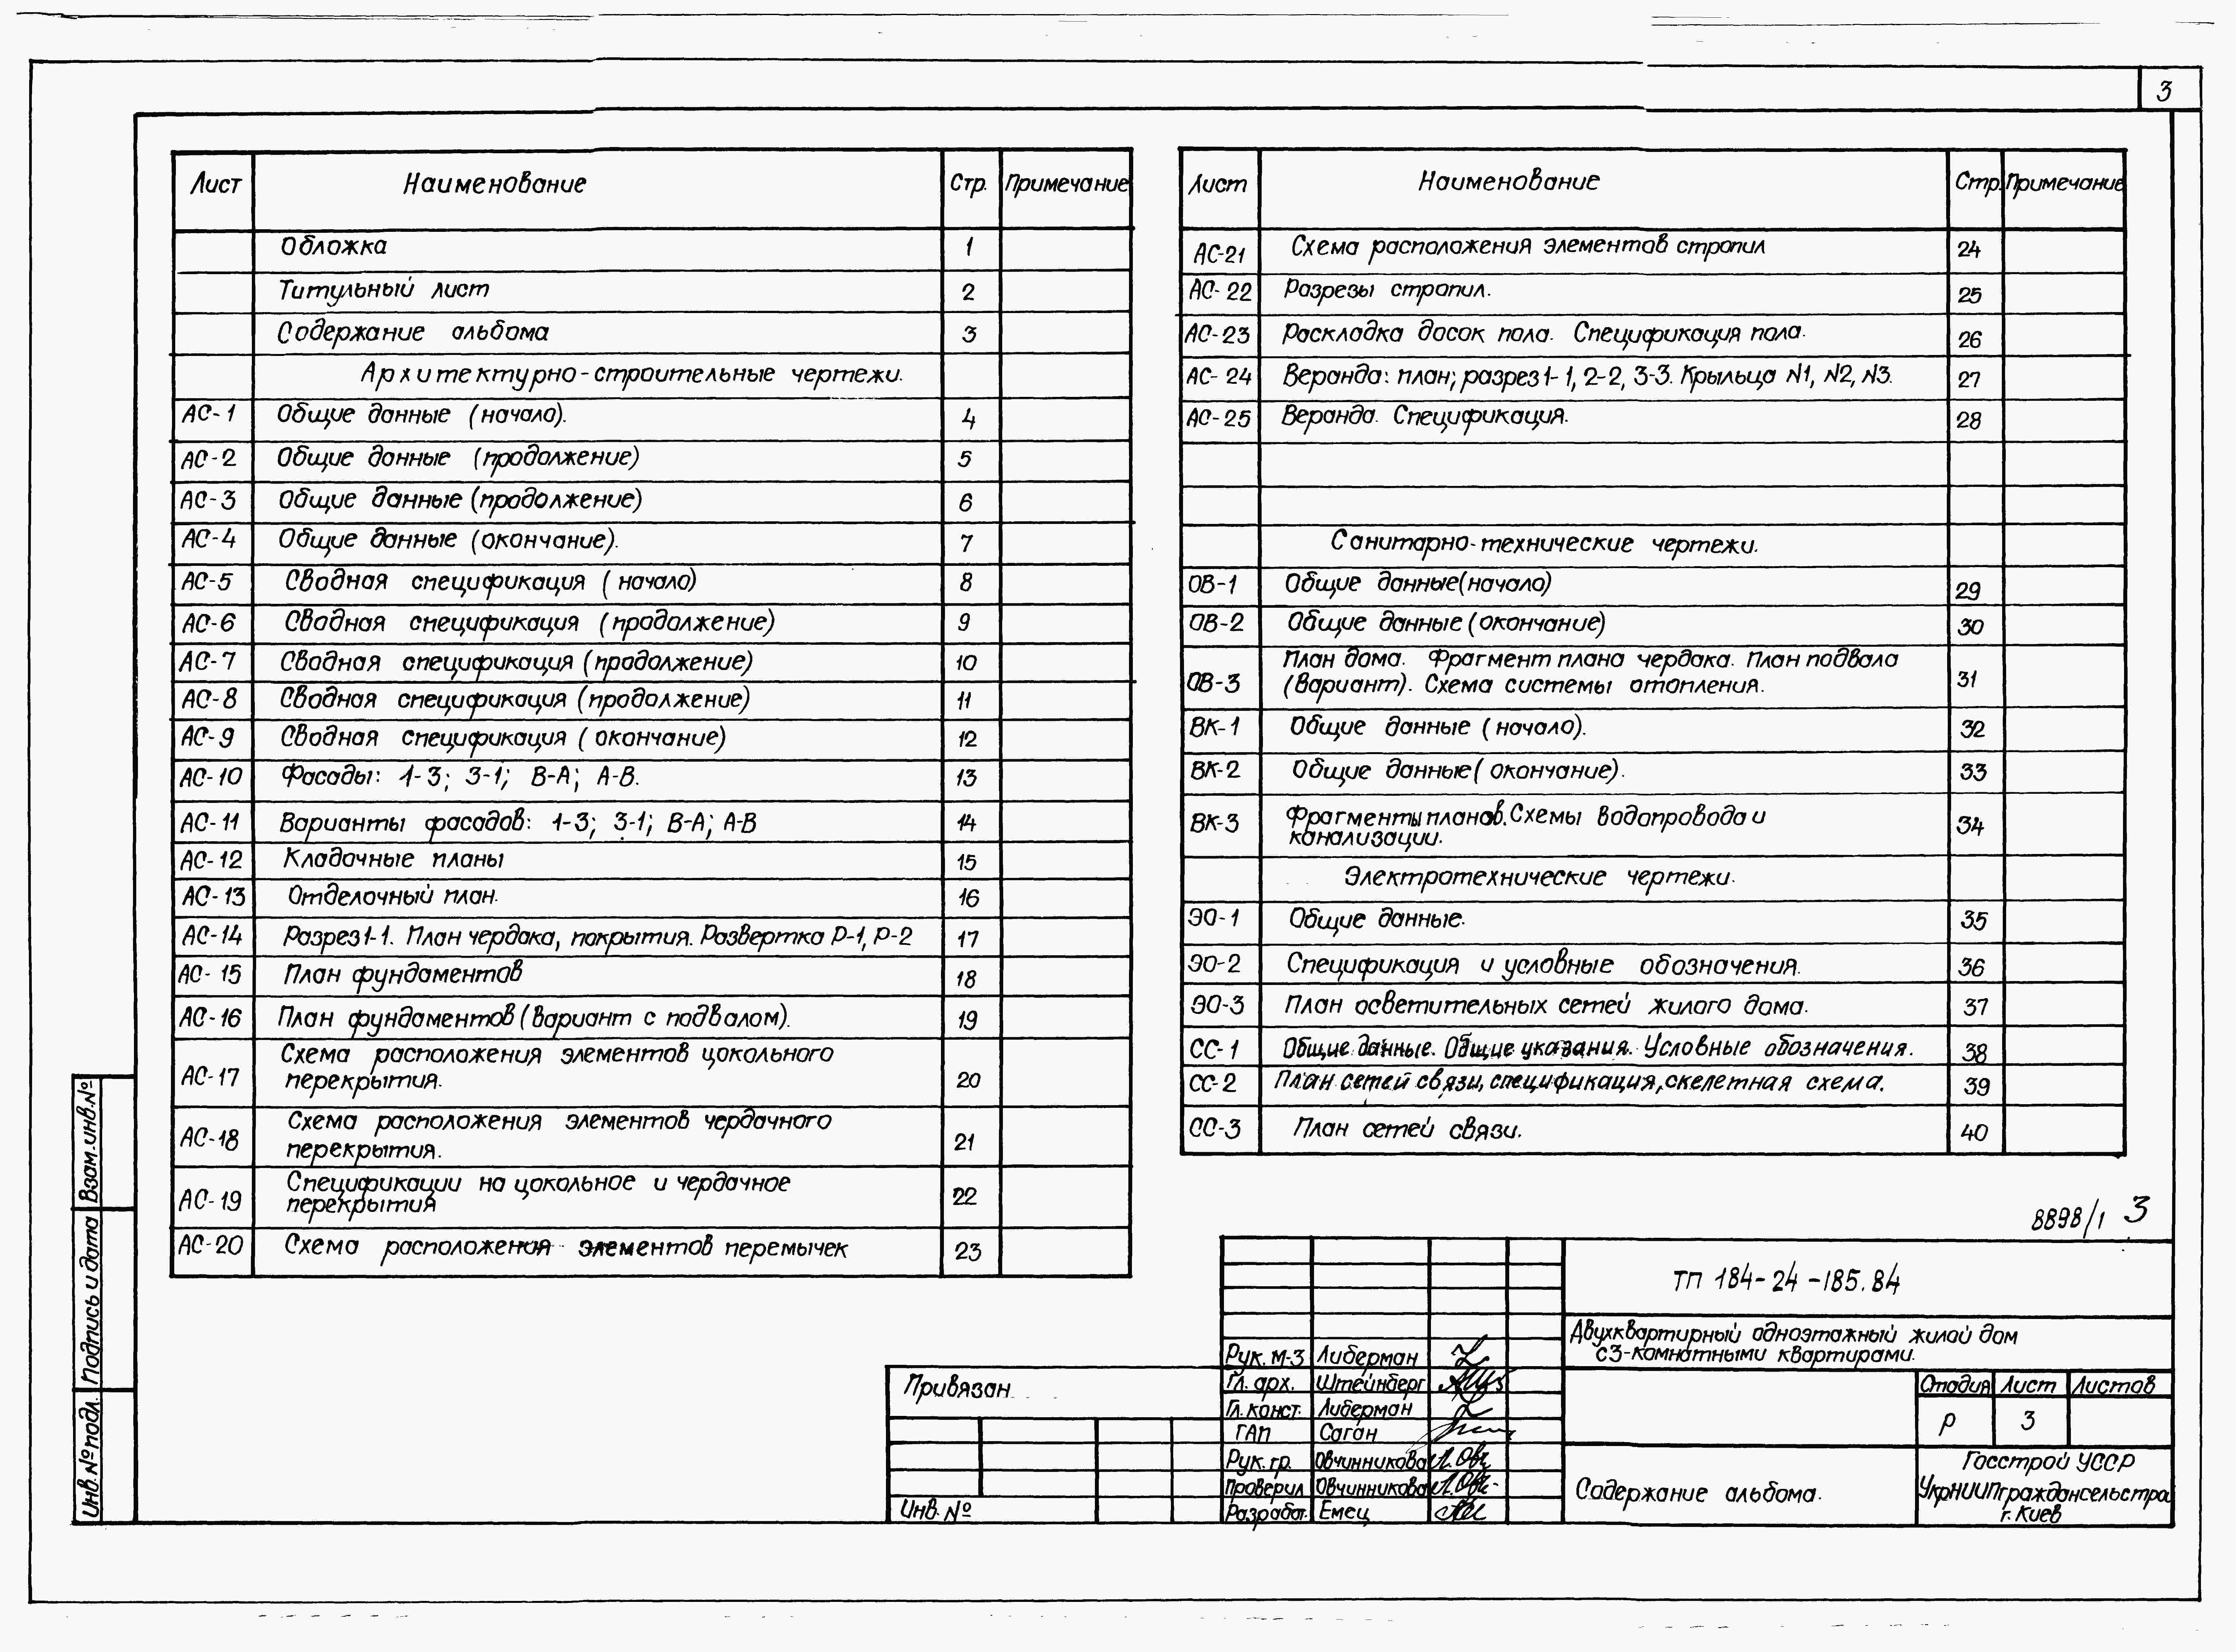 3
Лист Наименование Стр. Примечание
Обложка 1
Титульный лист 2
Содержание альбома 3
Архитектурно-строительные чертежи.
АС-1 Общие данные (начало). 4
АС-2 Общие данные (продолжение) 5
АС-3 Общие данные (продолжение) 6
АС-4 Общие данные (окончание). 7
АС-5 Сводная спецификация (начало) 8
АС-6 Сводная спецификация (продолжение) 9
АС-7 Сводная спецификация (продолжение) 10
АС-8 Сводная спецификация (продолжение) 11
АС-9 Сводная спецификация (окончание) 12
АС-10 Фасады: 1-3; 3-1; В-А; А-В. 13
АС-11 Варианты фасадов: 1-3; 3-1; В-А; А-В 14
АС-12 Кладочные планы 15
АС-13 Отделочный план. 16
АС-14 Разрез 1-1. План чердака, покрытия. Развертка Р-1, Р-2 17
АС-15 План фундаментов 18
АС-16 План фундаментов (вариант с подвалом). 19
АС-17 Схема расположения элементов цокольного
перекрытия. 20
АС-18 Схема расположения элементов чердачного
перекрытия. 21
АС-19 Спецификации на цокольное и чердачное
перекрытия 22
АС-20 Схема расположения элементов перемычек 23
Лист Наименование Стр. Примечание
АС-21 Схема расположения элементов стропил 24
АС-22 Разрезы стропил. 25
АС-23 Раскладка досок пола. Спецификация пола. 26
АС-24 Веранда: план; разрез 1-1, 2-2, 3-3. Крыльца N1, N2, N3. 27
АС-25 Веранда. Спецификация. 28
Санитарно-технические чертежи.
ОВ-1 Общие данные (начало) 29
ОВ-2 Общие данные (окончание) 30
ОВ-3 План дома. Фрагмент плана чердака. План подвала
(вариант). Схема системы отопления. 31
ВК-1 Общие данные (начало). 32
ВК-2 Общие данные (окончание). 33
ВК-3 Фрагменты планов. Схемы водопровода и
канализации. 34
Электротехнические чертежи.
ЭО-1 Общие данные. 35
ЭО-2 Спецификация и условные обозначения. 36
ЭО-3 План осветительных сетей жилого дома. 37
СС-1 Общие данные. Общие указания. Условные обозначения. 38
СС-2 План сетей связи, спецификация, скелетная схема. 39
СС-3 План сетей связи. 40
8898/1 3
ТП 184-24-185.84
Двухквартирный одноэтажный жилой дом
с 3-комнатными квартирами.
Рук. М-3 Либерман
Гл. арх. Штейнберг
Гл. конст. Либерман
ГАП Саган
Рук. гр. Овчинникова
Проверил Овчинникова
Разработ. Емец
Стадия Лист Листов
Р 3
Содержание альбома.
Госстрой УССР
УкрНИИПграждансельстрой
г. Киев
Привязан
Инв. №
Взам. инв. №
Подпись и дата
Инв. № подл.